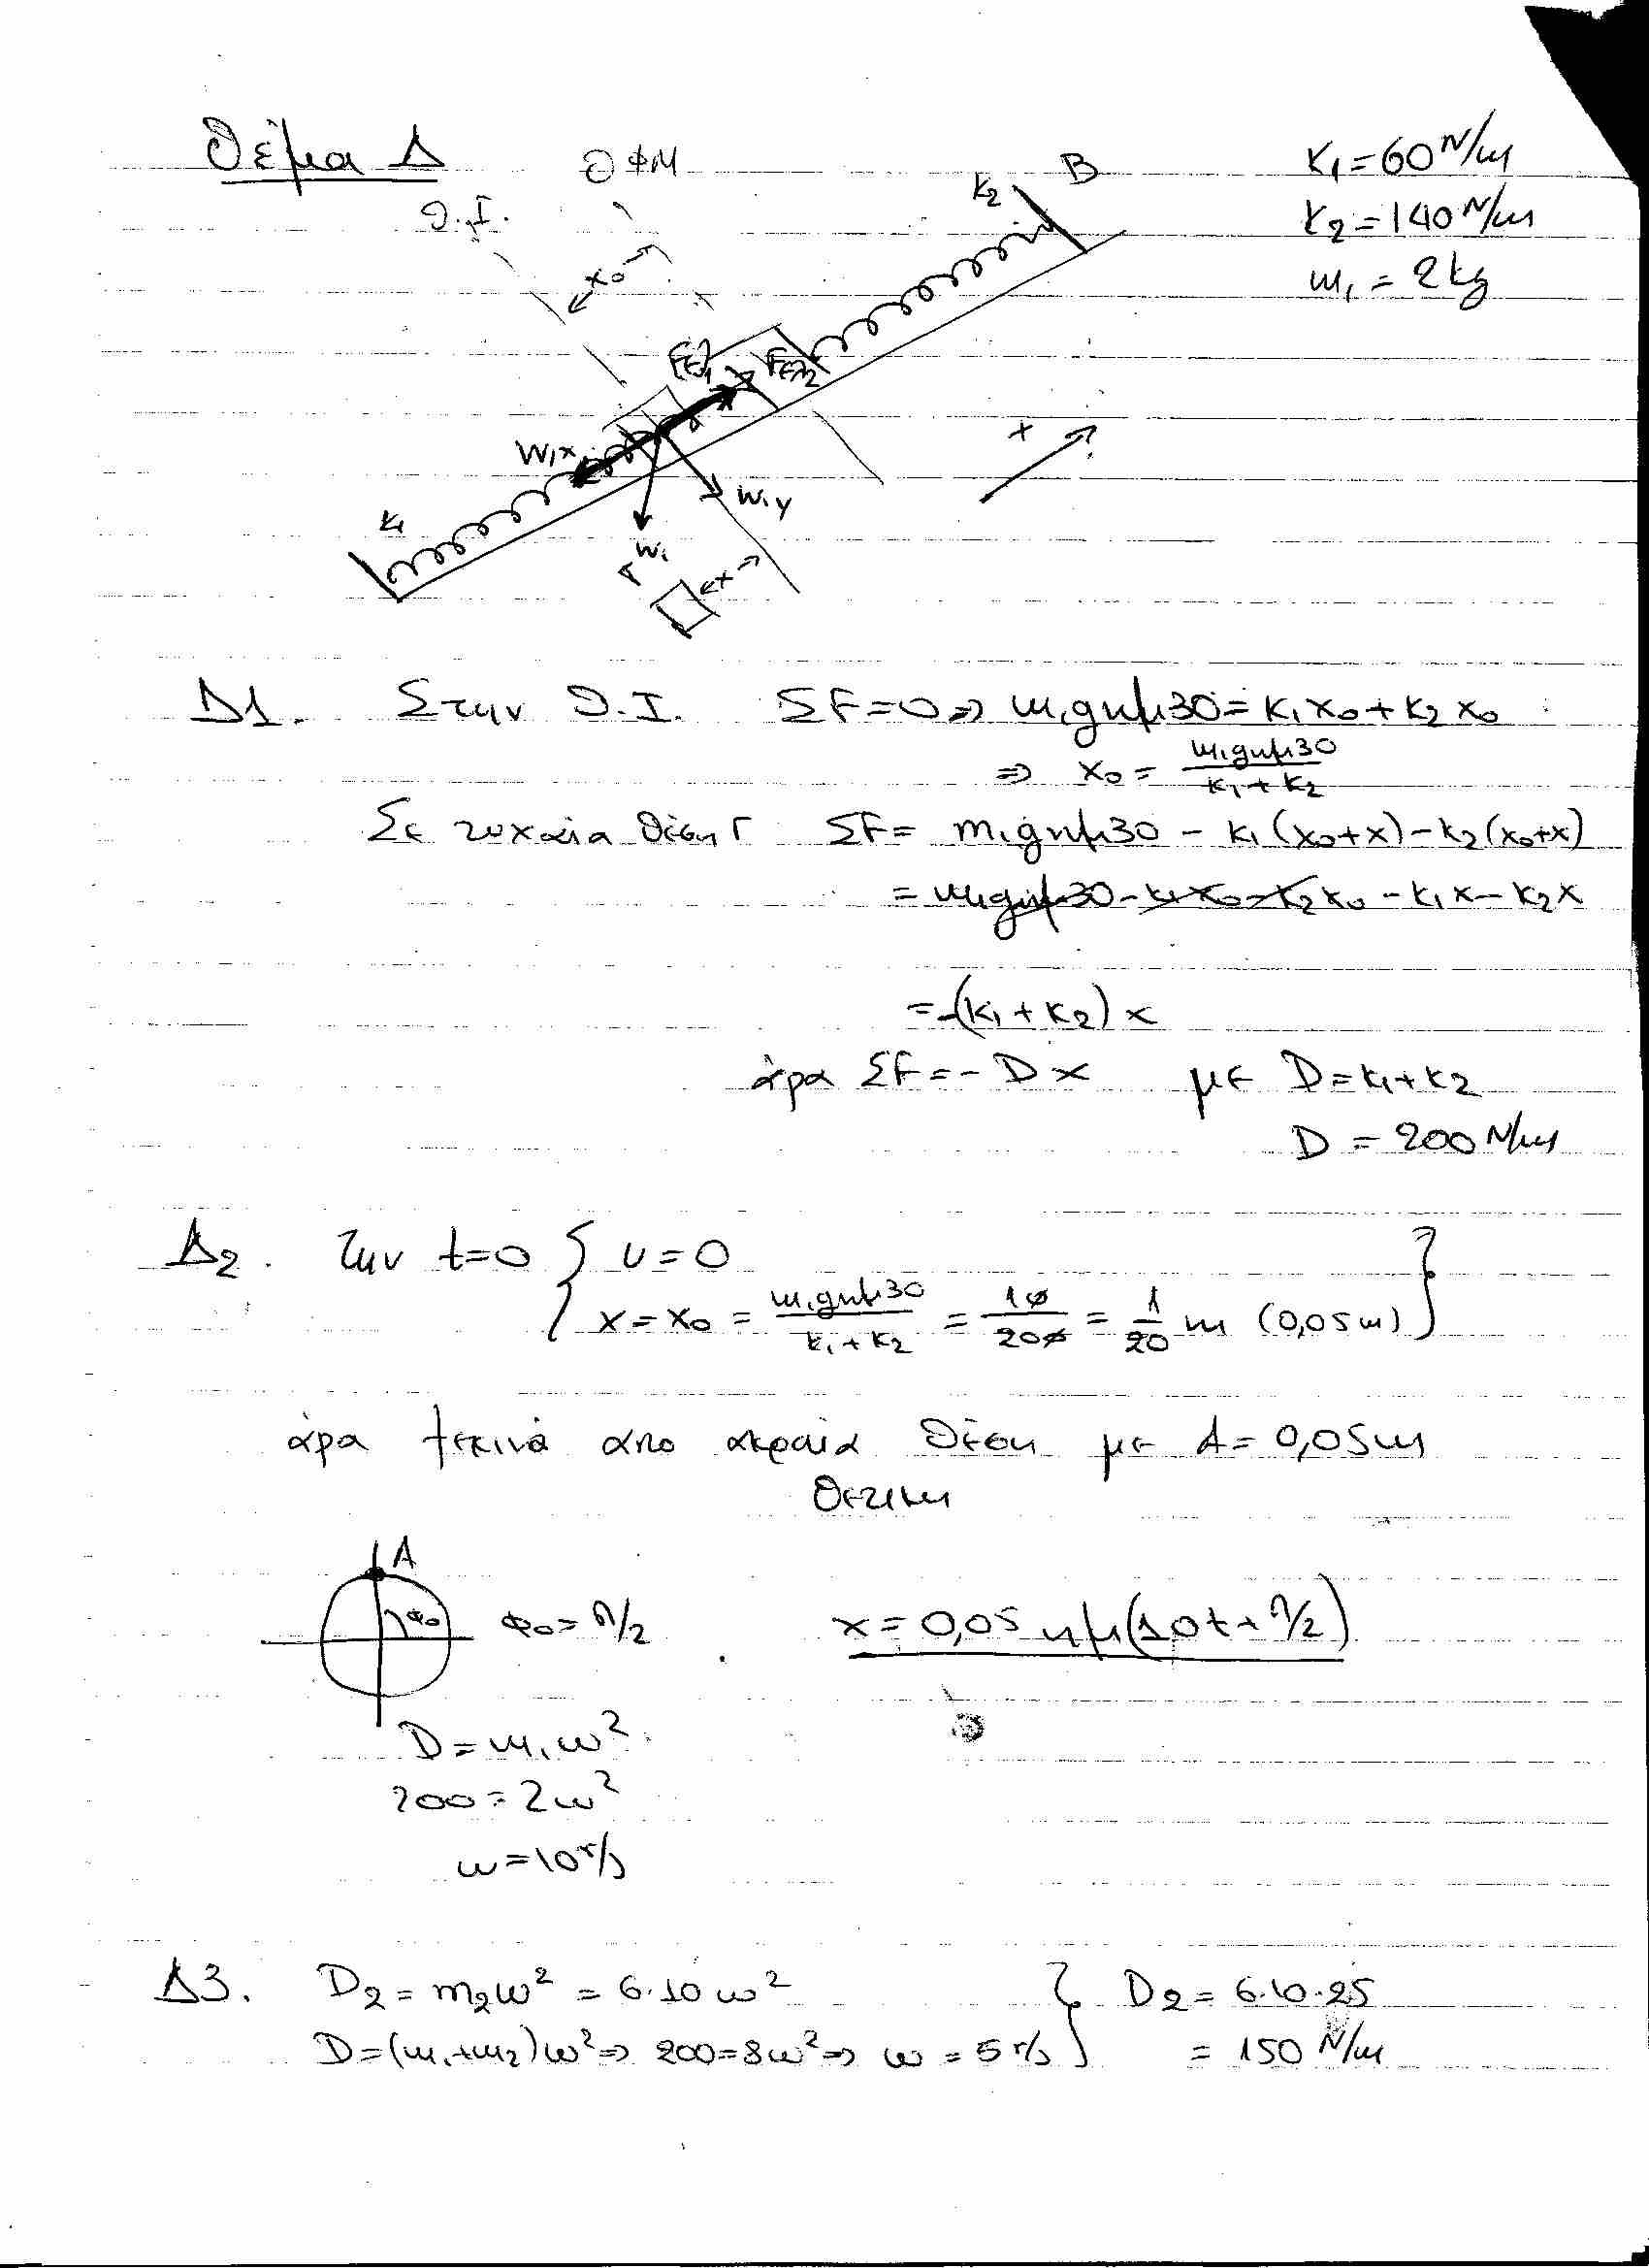 Θέμα Δ
ΘΦΜ
Θ.Ι.
x₀
K₂
B
K₁=60 N/m
K₂=140 N/m
m₁=2kg
Fελ₁
Fελ₂
W₁x
W₁y
W₁
K₁
x
Γ
x
Δ1. Στην Θ.Ι. ΣF=0 ⇒ m₁gημ30=K₁x₀+K₂x₀
⇒ x₀ = m₁gημ30 / K₁+K₂
Σε τυχαία θέση Γ ΣF= m₁gημ30 - K₁(x₀+x)-K₂(x₀+x)
= m₁gημ30-K₁x₀-K₂x₀-K₁x-K₂x
=-(K₁+K₂)x
άρα ΣF=-Dx με D=K₁+K₂
D=200N/m
Δ2. την t=0 { υ=0
x=x₀= m₁gημ30 / K₁+K₂ = 10/200 = 1/20 m (0,05m) }
άρα ξεκινά απο ακραία θέση με A=0,05m
θετικη
A
φ₀ φ₀=π/2 x=0,05ημ(10t+π/2)
D=m₁ω²
200=2ω²
ω=10r/s
Δ3. D₂=m₂ω²=6.10ω² } D₂=6.10.25
D=(m₁+m₂)ω²⇒ 200=8ω²⇒ ω=5r/s } =150N/m